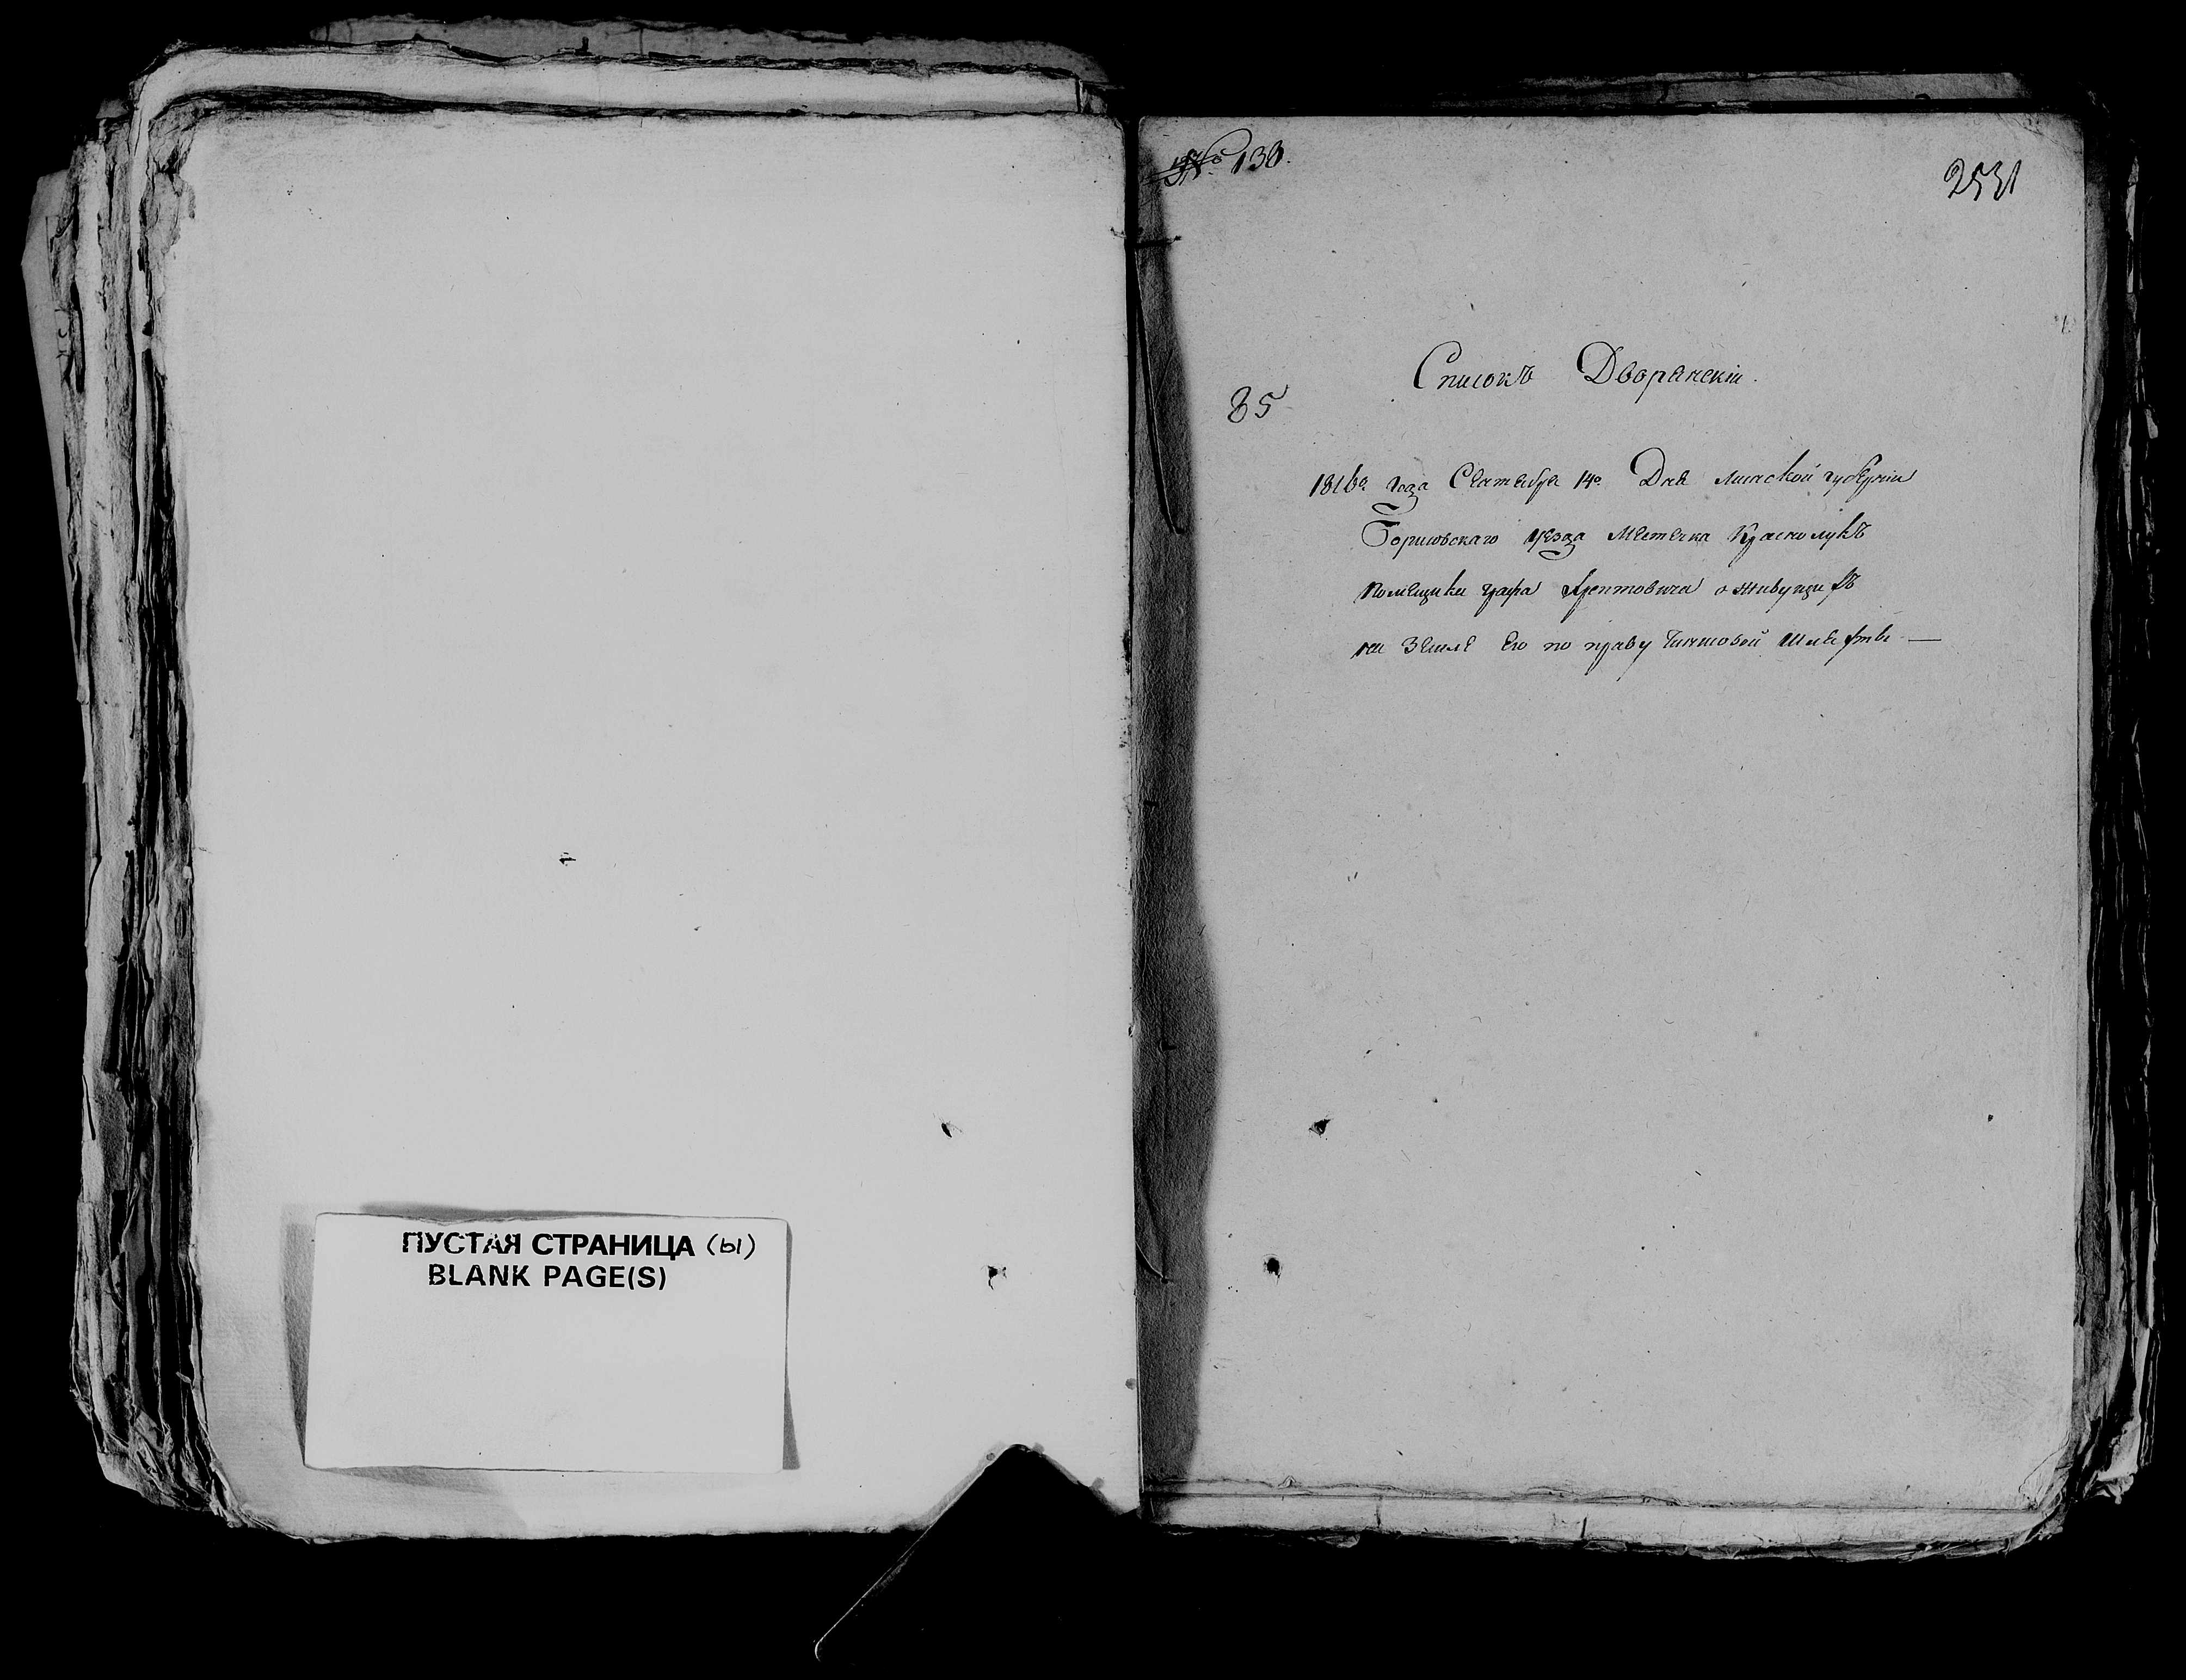 ПУСТАЯ СТРАНИЦА (ы)
BLANK PAGE(S)
№ 130.
2531
Списокъ Дворянскіи.
85
1816го года Сентября 14го Дня Минской губерніи
Борисовскаго уезда Местечка Краснолукъ
Помещика графа Хрептовича о живущихъ
на Земле Его по праву Чиншовой Шляхтѣ —